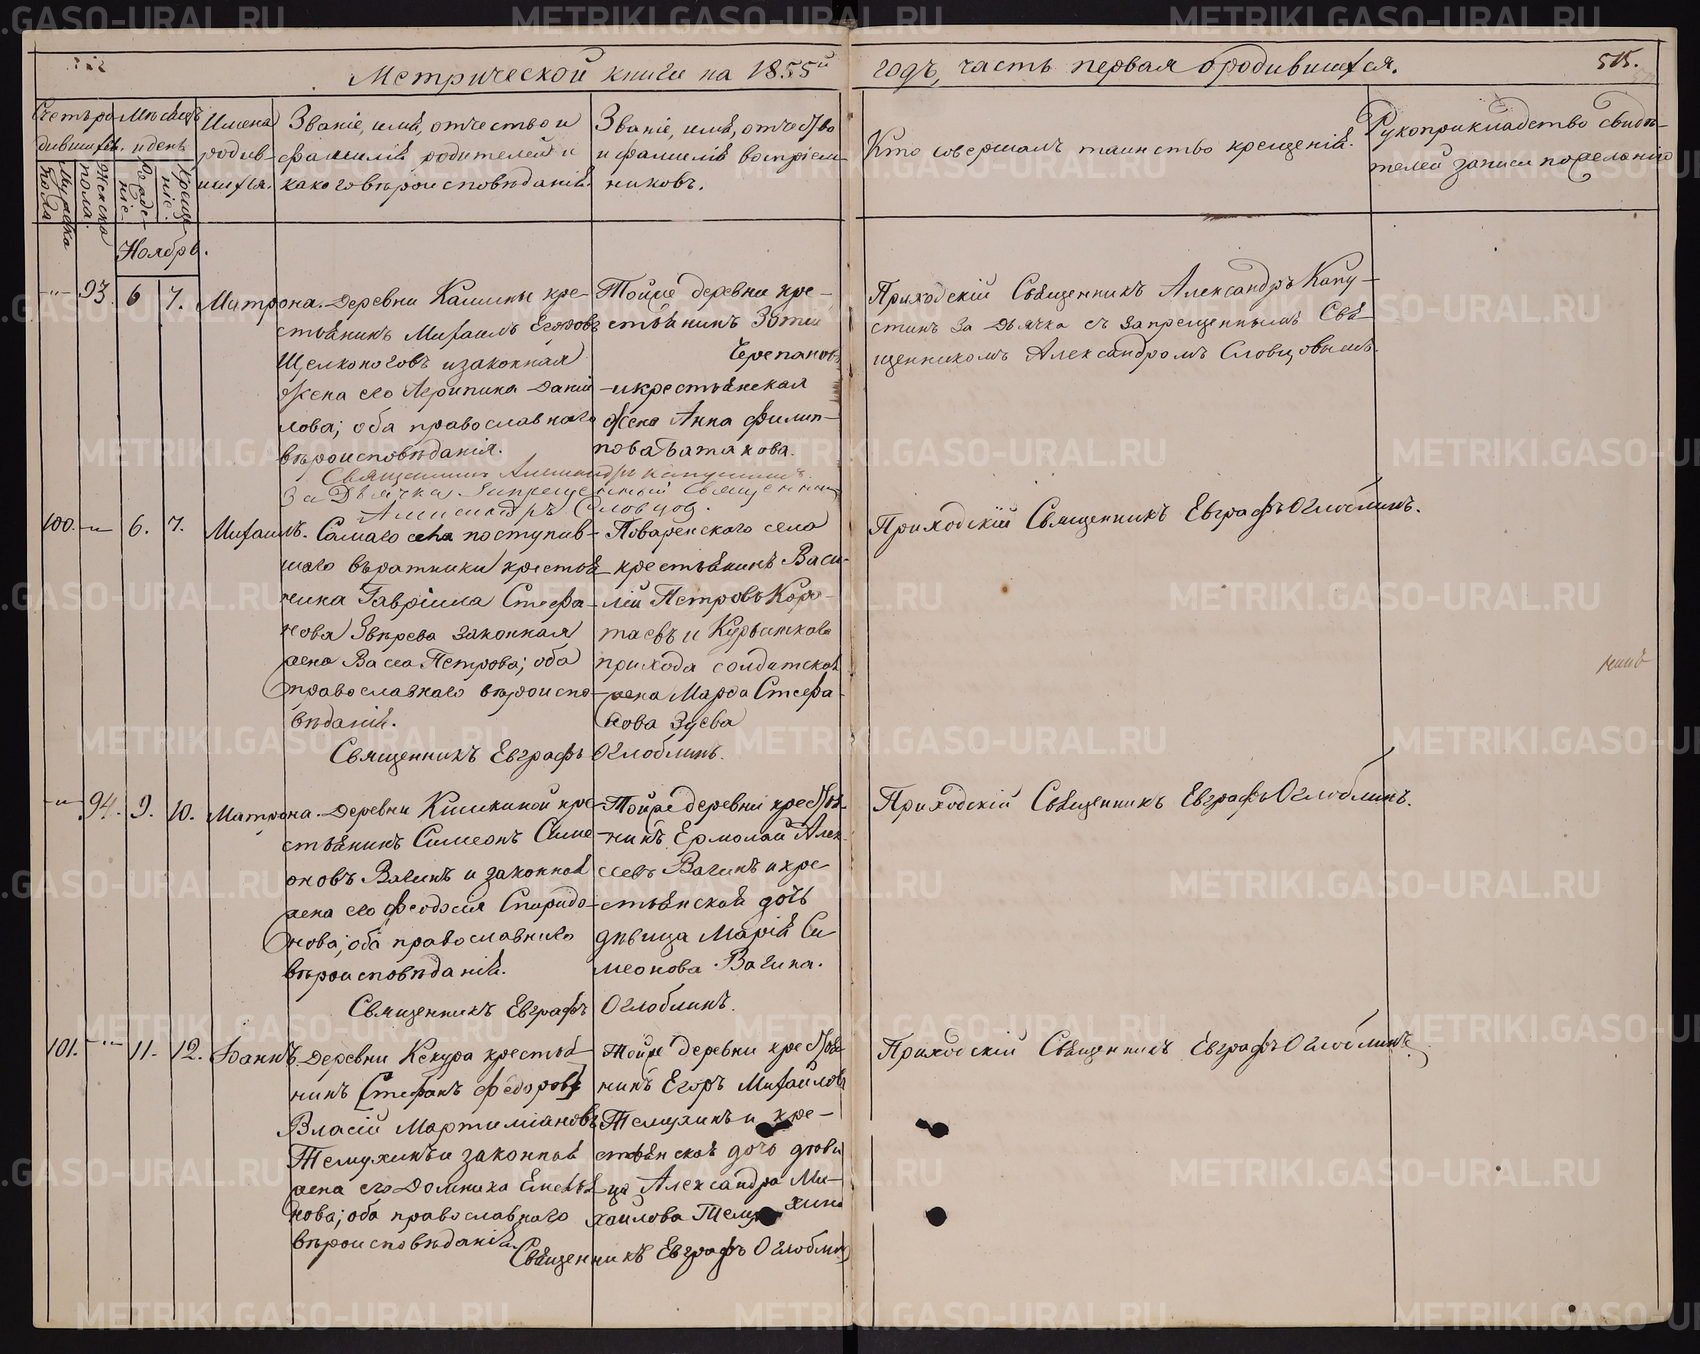 Метрической книги на 1855й
годъ, часть первая о родившихся.
515.
Счетъ родившихся.
Мужеска пола.
Женска пола.
Мѣсяцъ и день
Рожденіе.
Крещеніе.
Имена
родив-
шихся.
Званіе, имя, отчество и
фамилія родителей и
какого вѣроисповѣданія.
Званіе, имя, отчество
и фамилія воспріем-
никовъ.
Кто совершалъ таинство крещенія.
Рукоприкладство свидѣ-
телей записи по желанію
Ноябрь.
93. 6 7. Матрона.
Деревни кре-
стьянинъ Михаилъ Егоровъ
Щелконоговъ и законная
жена его Агрипина Дании-
лова; оба православнаго
вѣроисповѣданія.
Священникъ Александръ Капустинъ
За Дьячка Запрещенный Священникъ
Александръ Словцов.
Тойже деревни кре-
стьянинъ
Черепановъ
и крестьянская
жена Анна Филип-
пова Батакова.
Приходскій Священникъ Александръ Капу-
стинъ За Дьячка съ Запрещеннымъ Свя-
щенникомъ Александромъ Словцовымъ.
100. -"- 6. 7. Михаилъ.
Самаго села поступив-
шаго въ ратники крестья-
нина Гавріила Стефа-
нова Звѣрева законная
жена Васса Петрова; оба
православнаго вѣроиспо-
вѣданія.
Священникъ Евграфъ Оглоблинъ.
Поваренского села
крестьянинъ Васи-
лій Петровъ Коро-
таевъ и
прихода солдатская
жена Марфа Стефа-
нова Зуева
Приходскій Священникъ Евграфъ Оглоблинъ.
-"- 94. 9. 10. Матрона.
Деревни Кишкиной кре-
стьянинъ Симеонъ Симе-
оновъ Вагинъ и законная
жена его Феодосія Спиридо-
нова; оба православнаго
вѣроисповѣданія.
Священникъ Евграфъ Оглоблинъ.
Тойже деревни крестья-
нинъ Ермолай Алек-
сеевъ Вагинъ и кре-
стьянская дочь
дѣвица Марія Си-
меонова Вагина.
Приходскій Священникъ Евграфъ Оглоблинъ.
101. -"- 11. 12. Іоаннъ.
Деревни Кекура крестья-
нинъ [Стефанъ Федоровъ]
Власій Мартиміановъ
Темухинъ и законная
жена его Домника Емелья-
нова; оба православнаго
вѣроисповѣданія.
Священникъ Евграфъ Оглоблинъ
Тойже деревни крестья-
нинъ Егоръ Михайловъ
Темухинъ и кре-
стьянская дочь дѣви-
ца Александра Ми-
хаилова Темухина
Приходскій Священникъ Евграфъ Оглоблинъ.
METRIKI.GASO-URAL.RU